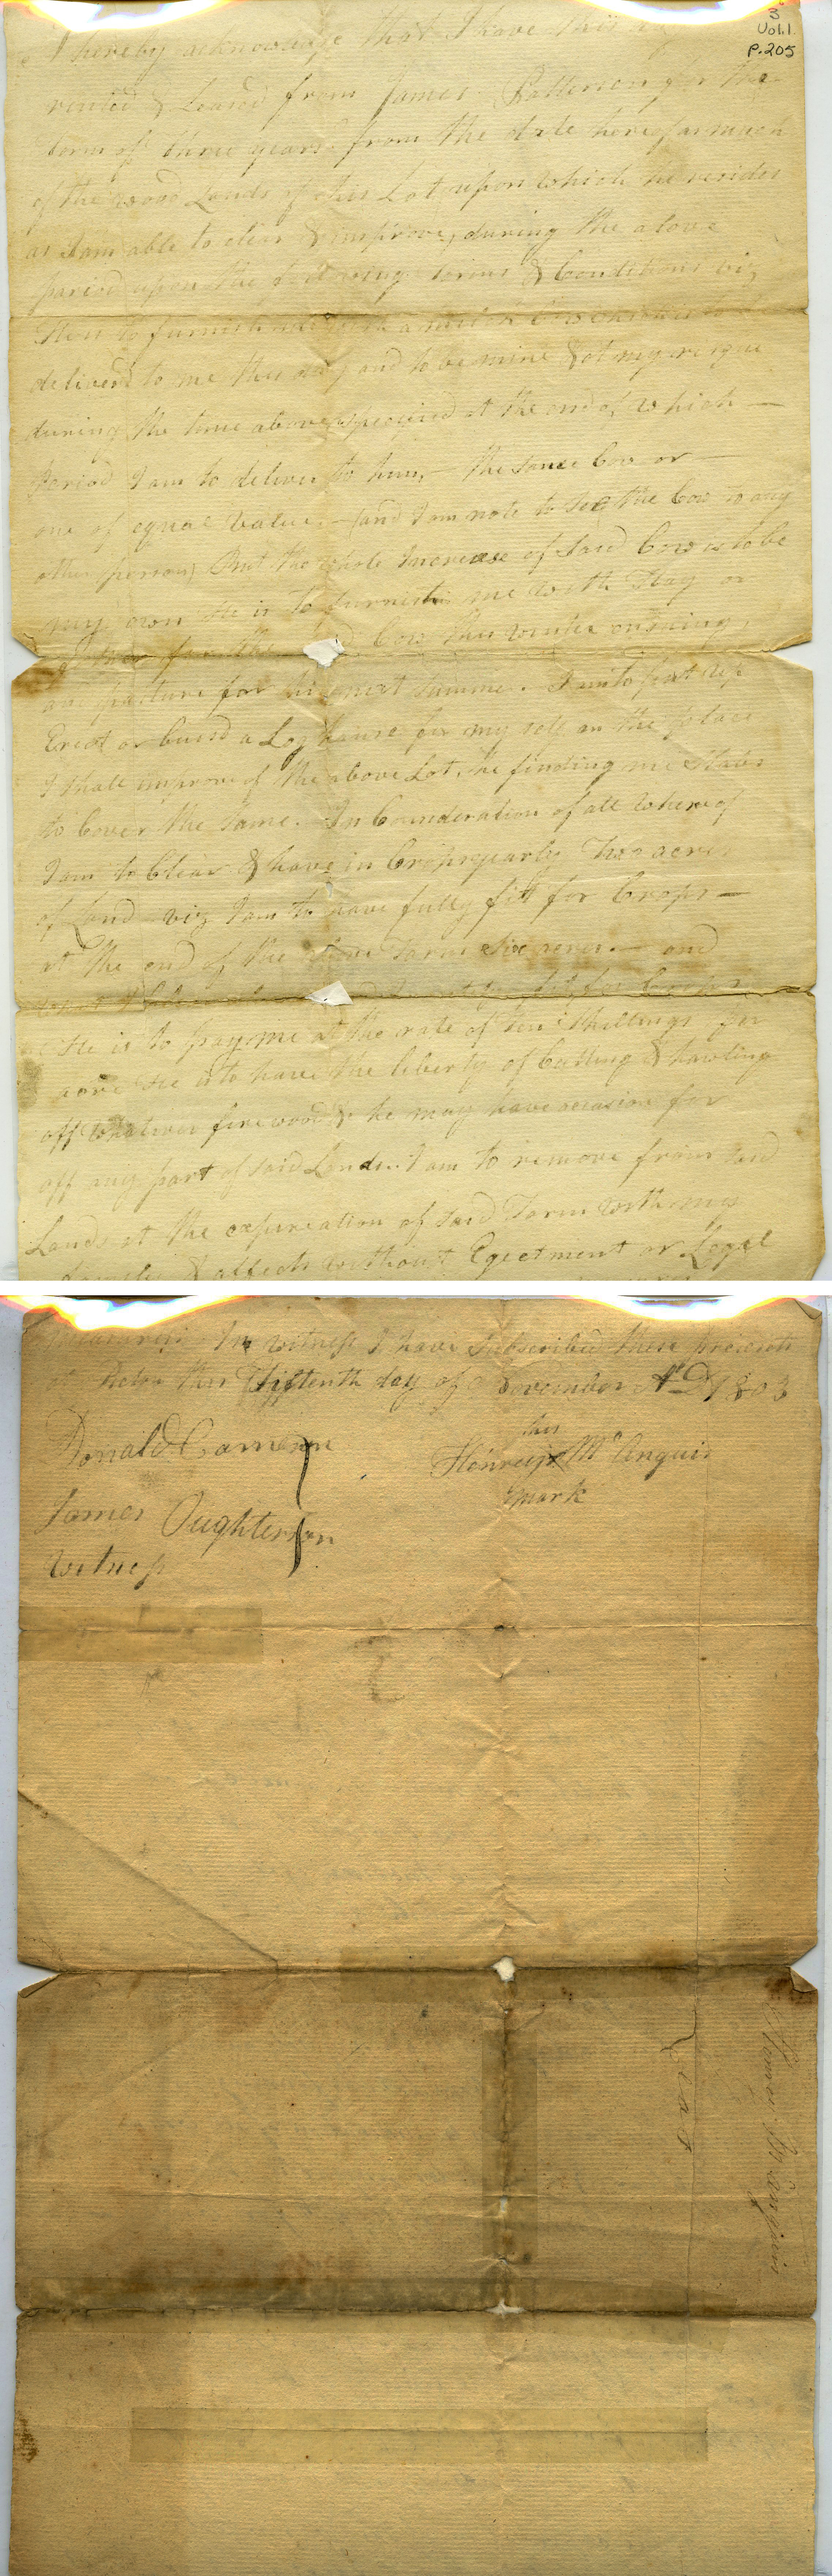 3
Vol. 1.
P. 205
I hereby acknowledge that I have this
rented & Leased from James Patterson for the
term of three years from the date here far much
of the wood Lands of his Lot upon which he resides
as I am able to clear & improve, during the above
period upon the following terms & Conditions viz
to furnish me with a milch Cow which is to be
deliverd to me this day and to be mine & at my risque
during the time above specified at the end of which —
period I am to deliver to him — the same Cow or —
one of equal value. — (and I am note to sell the Cow to any
other person) But the whole Increase of said Cow is to be
my own He is to furnish me with Hay or
for the Cow this winter ensuing,
and pasture for the next summer. I am to put up
Erect or build a Log house for my self on the place
I shall improve of the above Lot, he finding me Slabs
to Cover the same. In Consideration of all whereof
I am to Clear & have in Crop yearly Two acres
of Land viz I am to have fully fitt for Crops —
at the end of the above Term six acres. — and
for Crops
He is to pay me at the rate of ten Shillings per
acre He is to have the liberty of Cutting & hawling
off whatever firewood he may have occasion for
off any part of said Lands. I am to remove from said
Lands at the expireation of said Term with my
family & affects without Ejectment or Legal
In witness I have subscribed these presents
at Pictou this Fifteenth day of November A.D. 1803
Donald Cameron
his
Henrey x Mc Anguis
mark
James Oughterson
Witness